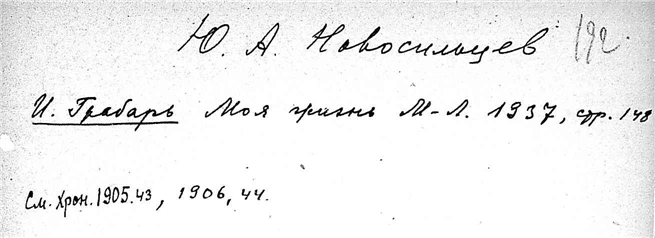 Ю. А. Новосильцев 192.
И. Грабарь Моя жизнь М-Л. 1937, стр. 148
См. Хрон. 1905.43, 1906, 44.